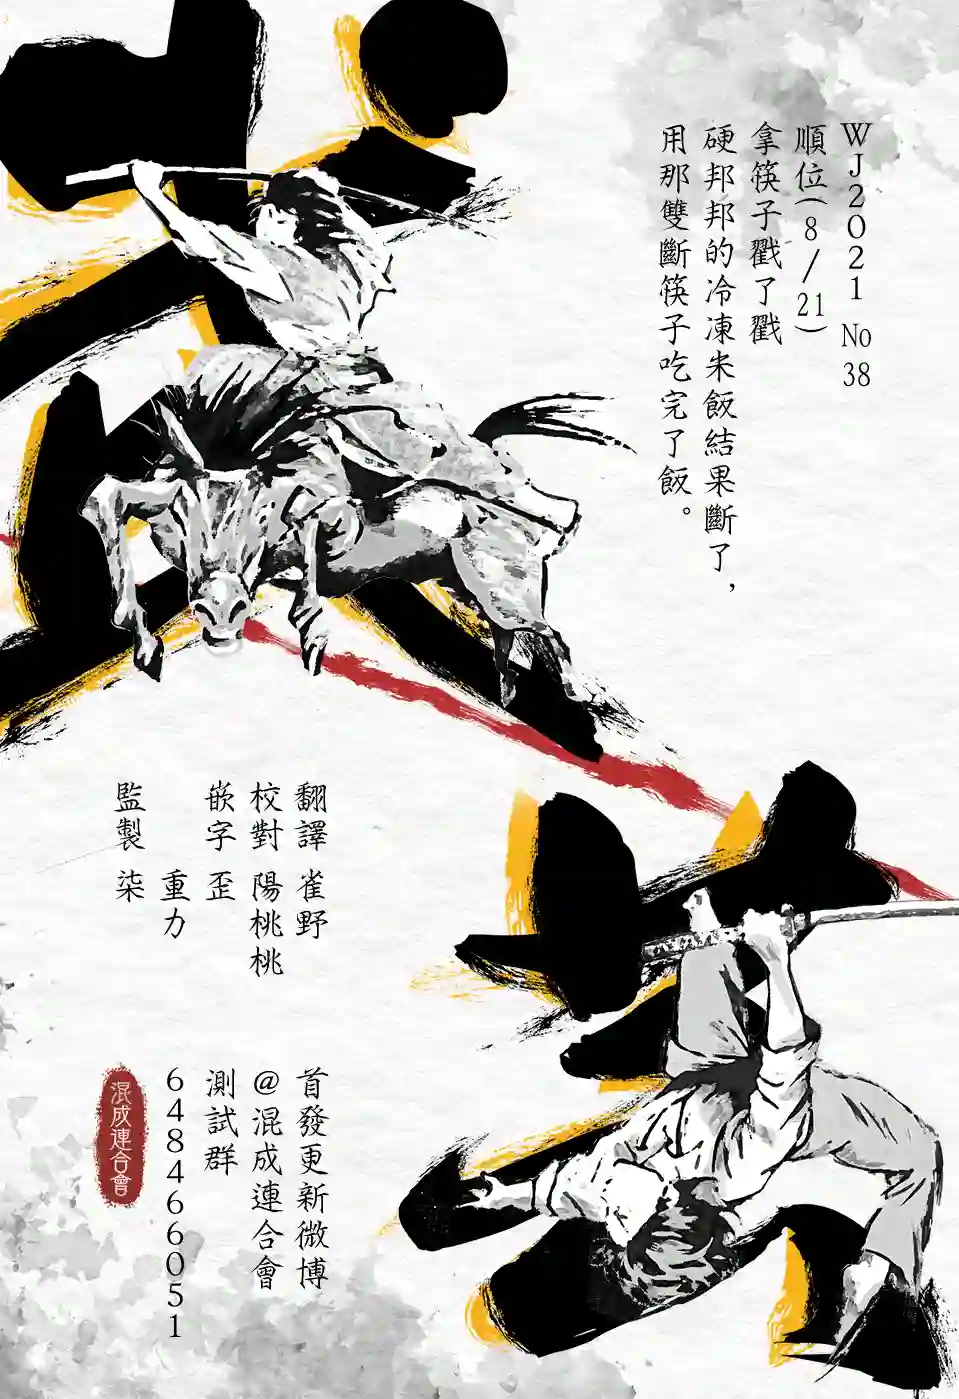 WJ2021 No 38
順位(8/21)
拿筷子戳了戳
硬邦邦的冷凍米飯結果斷了，
用那雙斷筷子吃完了飯。
翻譯 雀野
校對 陽桃桃
嵌字 歪
重力
監製 柒
首發更新微博
@混成連合會
測試群
648466051
混成連合會